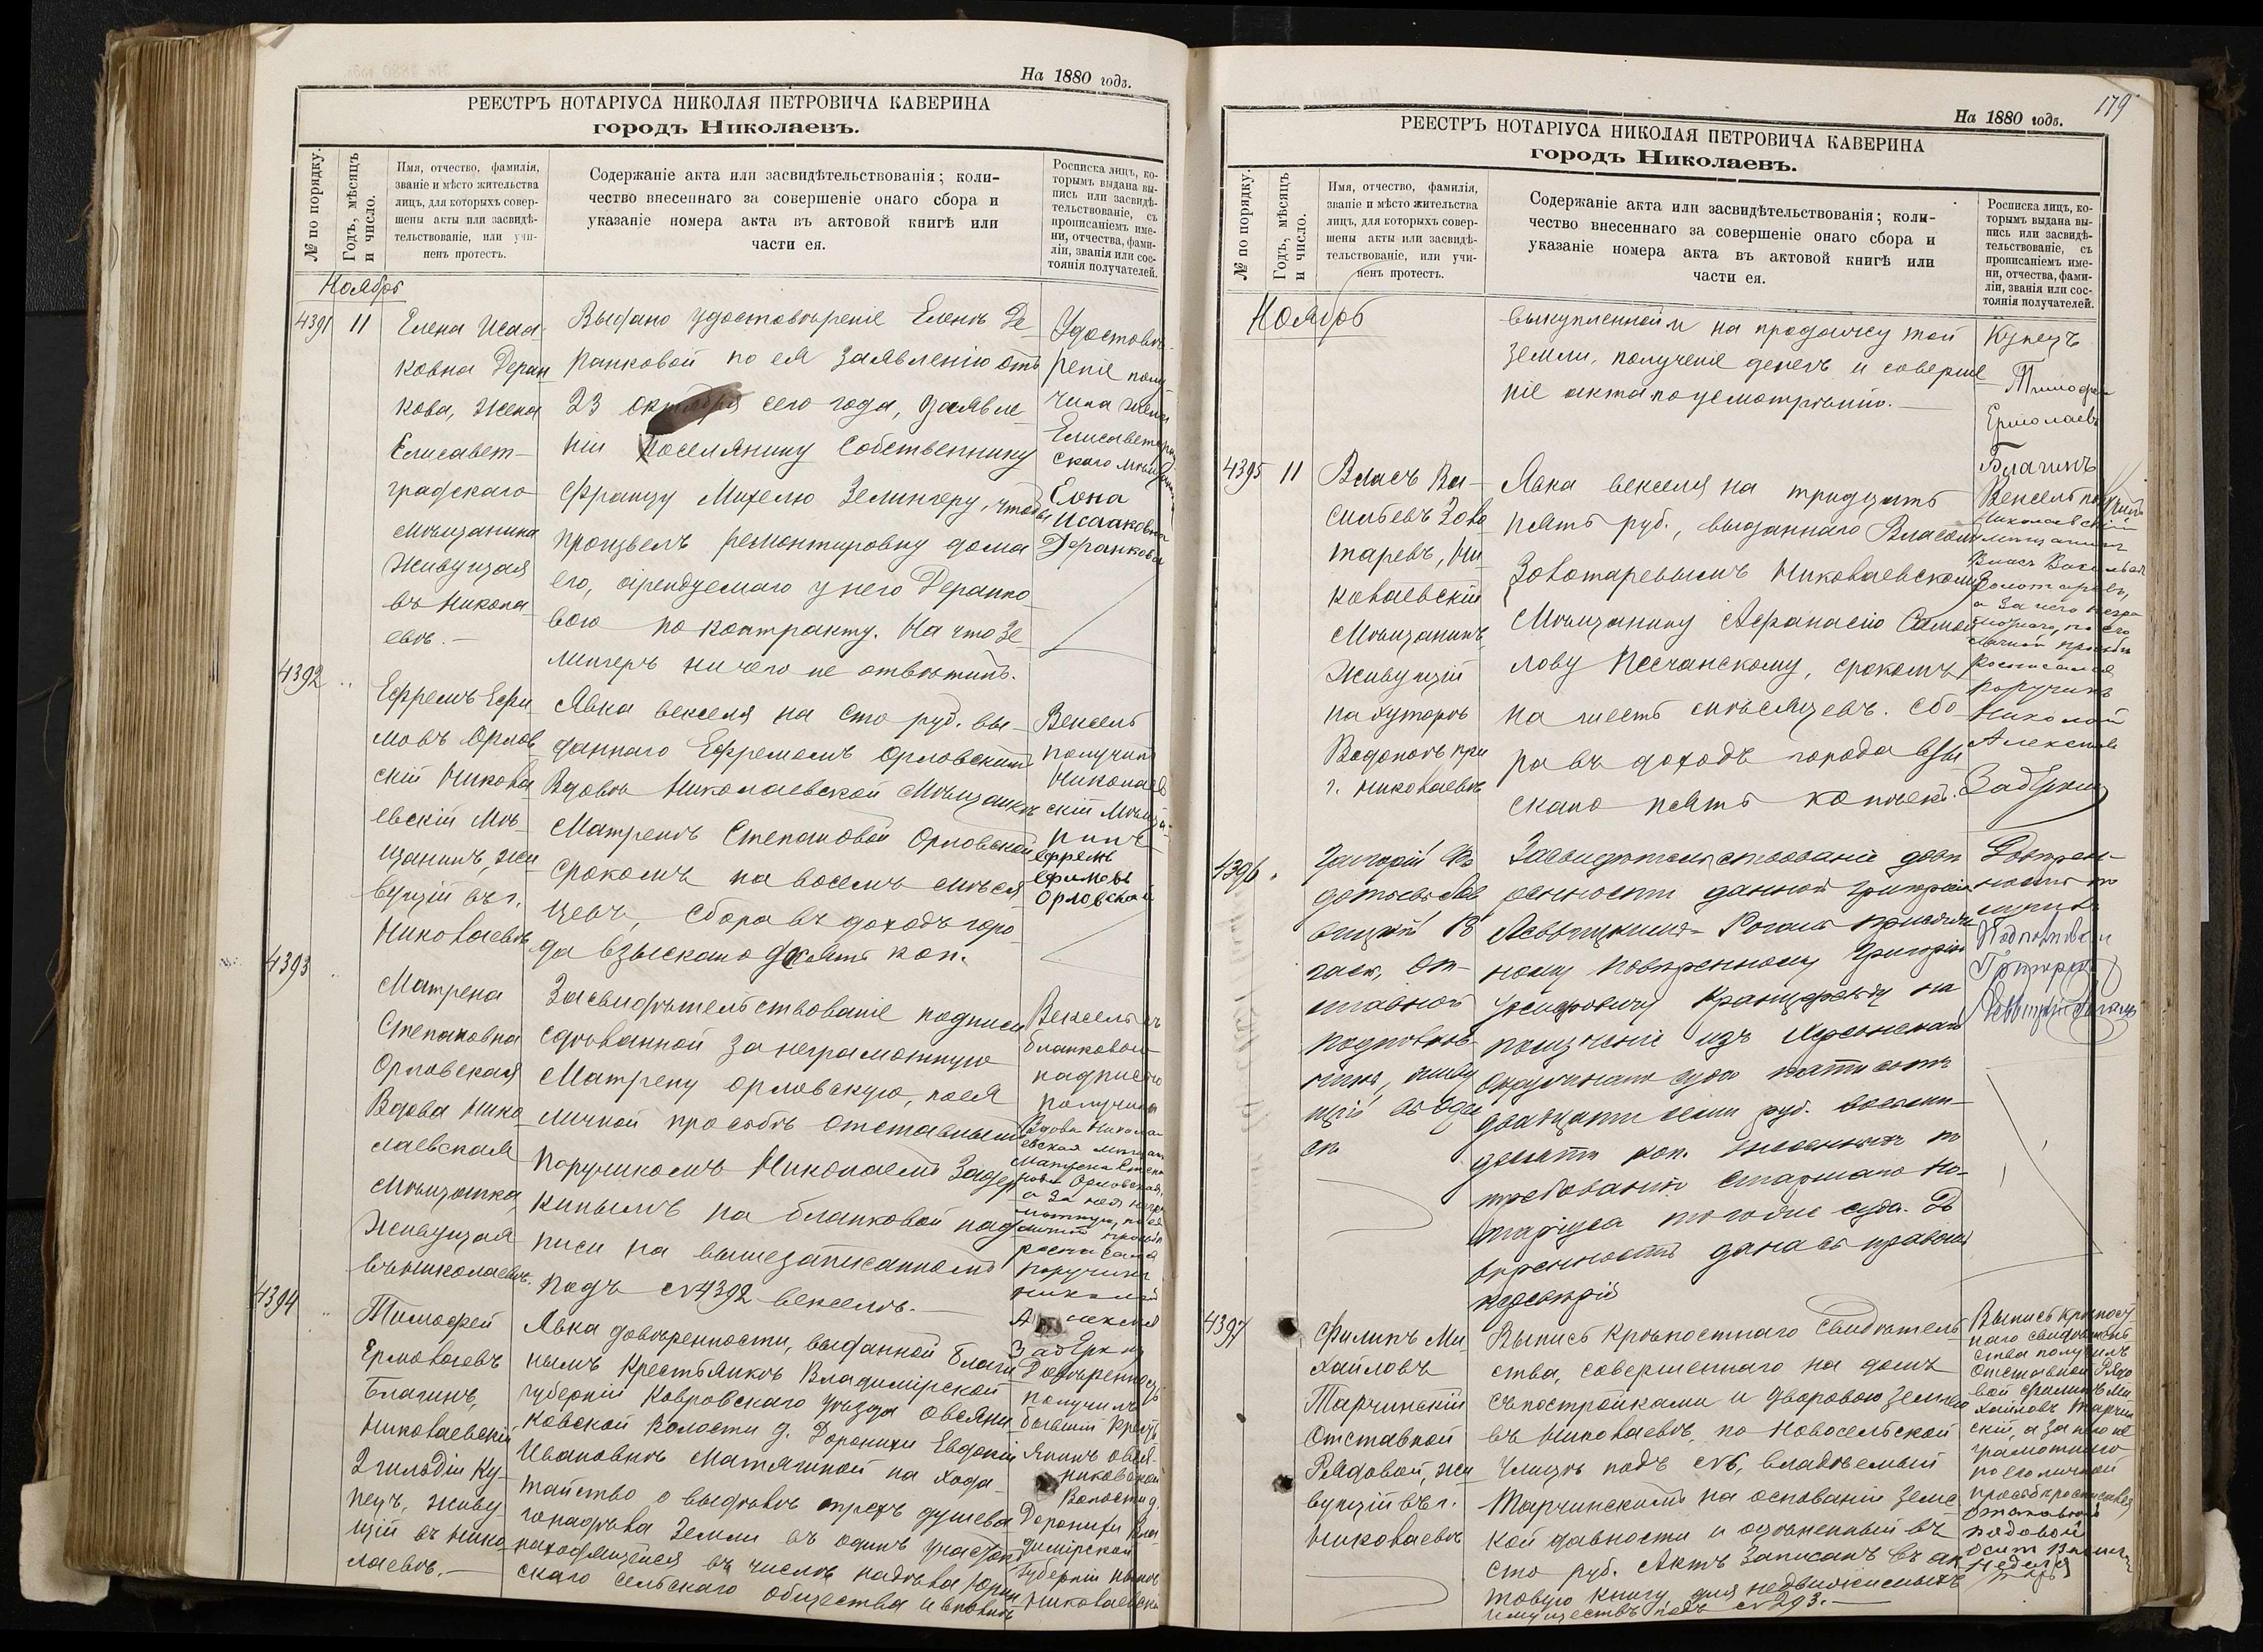 На 1880 годъ.
РЕЕСТРЪ НОТАРІУСА НИКОЛАЯ ПЕТРОВИЧА КАВЕРИНА
городъ Николаевъ.
№ по порядку.
Годъ, мѣсяцъ
и число.
Имя, отчество, фамилія,
званіе и мѣсто жительства
лицъ, для которыхъ совер-
шены акты или засвидѣ-
тельствованіе, или учи-
ненъ протестъ.
Содержаніе акта или засвидѣтельствованія; коли-
чество внесеннаго за совершеніе онаго сбора и
указаніе номера акта въ актовой книгѣ или
части ея.
Росписка лицъ, ко-
торымъ выдана вы-
пись или засвидѣ-
тельствованіе, съ
прописаніемъ име-
ни, отчества, фами-
ліи, званія или сос-
тоянія получателей.
Ноябрь
4391 11
Елена Исаа-
ковна Деран
кова, жена
Елисавет-
градскаго
мѣщанина
живущая
въ Никола
евѣ.
Выдано удостовѣреніе Еленѣ Де
ранковой по ея заявленію отъ
23 октября сего года, заявле
ніи поселянину собственнику
Францу Михелю Зелингеру, чтобы
произвелъ ремонтировку дома
его, арендуемаго у него Деранко
вою по контракту. На что Зе
лингеръ ничего не отвѣтилъ.
Удостовѣ-
реніе полу
чила жена
Елисаветград
скаго мѣщан
Елена
Исааковна
Деранкова
4392 "
Ефремъ Ефи
мовъ Орлов
скій Никола
евскій мѣ-
щанинъ, жи
вущій въ г.
Николаевѣ
Явка векселя на сто руб. вы-
даннаго Ефремомъ Орловскимъ
вдовѣ Николаевской мѣщанкѣ
Матренѣ Степановой Орловской
срокомъ на восемь мѣся
цевъ, сбора въ доходъ горо-
да взыскано десять коп.
Вексель
получилъ
Николаев
скій мѣща-
нинъ
ефремъ
ефимовъ
Орловской
4393 "
Матрена
Степановна
Орловская
Вдова Нико
лаевская
мѣщанка,
живущая
въ Николаевѣ.
Засвидѣтельствованіе подписи
сдѣланной за неграмотную
Матрену Орловскую, по ея
личной просьбѣ отставнымъ
поручикомъ Николаемъ Задер
кинымъ на бланковой над
писи на вышезаписанномъ
подъ №4392 векселѣ.
Вексель съ
бланковою
надписью
получила
Вдова Никола
евская мѣщан
Матрена Степа
нова Орловская,
а за нея негра
мотную, по ея
личной просьбѣ
росписался
поручикъ
Николай
4394 "
Тимофей
Ермолаевъ
Благинъ,
Николаевскій
2 гильдіи ку-
пецъ, живу
щій въ Нико
лаевѣ.
Явка довѣренности, выданной Благи
нымъ крестьянкѣ Владимірской
губерніи Ковровскаго уѣзда Овсяни
ковской волости д. Доронихи Евдокіи
Ивановнѣ Матягиной на хода-
тайство о выдѣлѣ трехъ душева
го надѣла земли въ одинъ участок
находящейся въ числѣ надѣла
скаго сельскаго общества и вновь
Довѣренность
получилъ
бывшій крест
янинъ Овся-
никовской
волости д.
Доронихи Вла
димірской
губерніи нынѣ
Николаевск
179
На 1880 годъ.
РЕЕСТРЪ НОТАРІУСА НИКОЛАЯ ПЕТРОВИЧА КАВЕРИНА
городъ Николаевъ.
№ по порядку.
Годъ, мѣсяцъ
и число.
Имя, отчество, фамилія,
званіе и мѣсто жительства
лицъ, для которыхъ совер-
шены акты или засвидѣ-
тельствованіе, или учи-
ненъ протестъ.
Содержаніе акта или засвидѣтельствованія; коли-
чество внесеннаго за совершеніе онаго сбора и
указаніе номера акта въ актовой книгѣ или
части ея.
Росписка лицъ, ко-
торымъ выдана вы-
пись или засвидѣ-
тельствованіе, съ
прописаніемъ име-
ни, отчества, фами-
ліи, званія или сос-
тоянія получателей.
Ноябрь
выкупленной и на продажу той
земли, полученіе денегъ и соверше
ніе акта по усмотрѣнію.
Купецъ
Тимофей
Ермолаевъ
Благинъ
4395 11
Власъ Ва-
сильевъ Золо
таревъ, Ни
колаевскій
мѣщанинъ,
живущій
на хуторѣ
Водопой при
г. Николаевѣ
Явка векселя на тридцать
пять руб., выданнаго Власомъ
Золотаревымъ Николаевскому
мѣщанину Афанасію Самой
лову Песчанскому, срокомъ
на шесть мѣсяцевъ. Сбо
ра въ доходъ города взы
скано пять копѣекъ.
Вексель получилъ
Николаевскій
мѣщанинъ
Власъ Васильевъ
Золотаревъ,
а за него негра
мотнаго, по его
личной просьбѣ
росписался
поручикъ
Николай
Алексѣев
Задеркин
4396 "
Григорій Ѳе
вицкій Ро
галь, От-
ставной
подполков-
никъ, живу
щій въ Оде
сѣ
Засвидѣтельствованіе довѣ
ренности данной Григоріемъ
Левицкимъ-Рогаль присяжн
ному повѣренному Григорію
на
полученіе изъ Херсонскаго
Окружнаго суда пятисотъ
двадцати семи руб. восьми-
десяти коп. внесенныхъ по
требованію старшаго но-
таріуса того же суда. До
вѣренность дана съ правомъ
передовѣрія
Довѣрен-
ность по
лучилъ
Подполковникъ
Григорій
Левицкій-Рогаль
4397
Филипъ Ми
хайловъ
Тарчинскій
Отставной
Рядовой, жи
вущій въ г.
Николаевѣ
Выпись крѣпостнаго свидѣтель
ства, совершеннаго на домъ
съ постройками и дворовою землею
въ Николаевѣ по Новосельской
улицѣ подъ №6, владѣемый
Тарчинскимъ на основаніи земс
кой давности и оцѣненный въ
сто руб. Актъ записанъ въ ак
товую книгу для недвижимыхъ
имуществъ подъ №293.
Выпись крѣпост
наго свидѣтель
ства получилъ
Отставной Рядо
вой Филипъ Ми
хайловъ Тарчин
скій, а за него не
грамотнаго
по его личной
просьбѣ росписался
отставной
рядовой